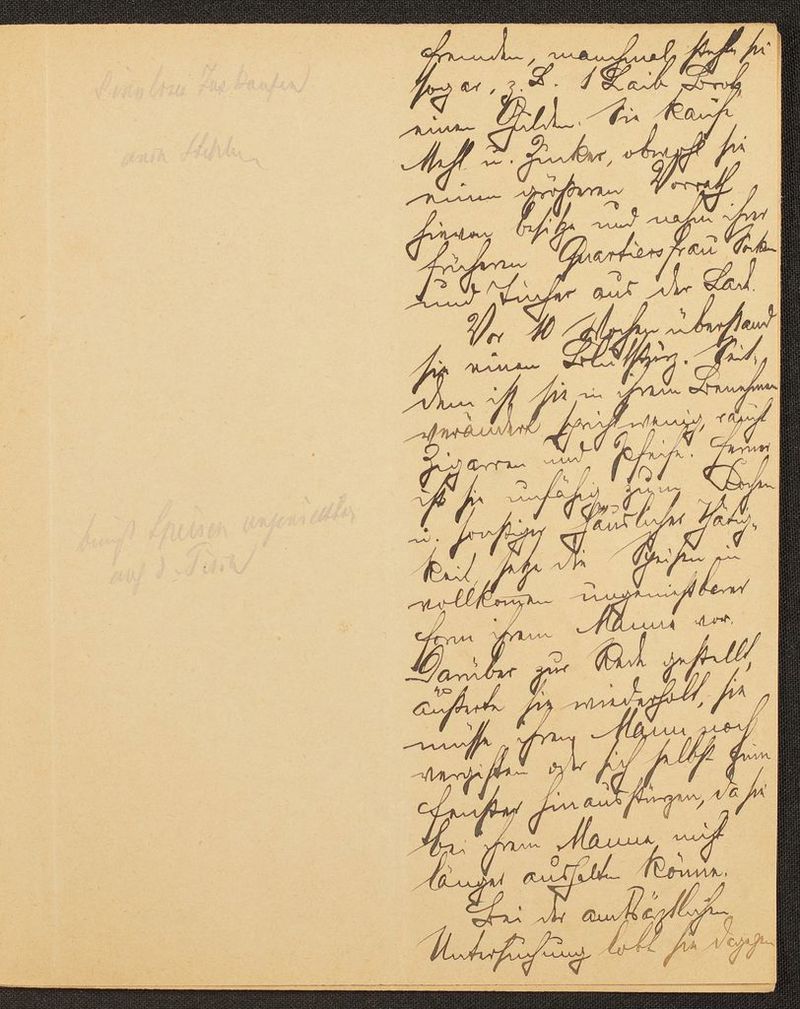 Sinnloses Zus
auch Stehlen
bringt Speisen ungeniessbar
auf d. Tisch
fremden, manchmal stehle sie
sogar, z. B. 1 Laib Brot,
einen Gulden. Sie kaufe
Mehl u. Zucker, obwohl sie
einen größeren Vorrath
hievon besitze und nahm ihrer
früheren Quartiersfrau Socken
und Tücher aus der Lade.
Vor 10 Wochen überstand
sie einen Blutsturz. Seit-
dem ist sie in ihrem Benehmen
verändert, spricht wenig, raucht
Zigarren und Pfeife. Ferner
ist sie unfähig zum Kochen
u. sonstiger häuslicher Thätig-
keit, setze die Speisen in
vollkommen ungenießbarer
Form ihrem Manne vor.
Darüber zur Rede gestellt,
äußerte sie wiederholt, sie
müsse ihren Mann noch
vergiften oder sich selbst zum
Fenster hinausstürzen, da sie
bei ihrem Manne nicht
länger aushalten könne.
Bei der amtsärztlichen
Untersuchung lobt sie dagegen